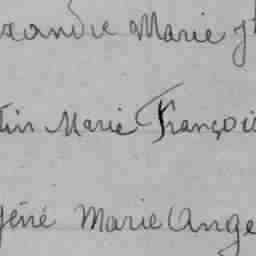 xandre Marie J
tin Marie Françoi
géné Marie Ange